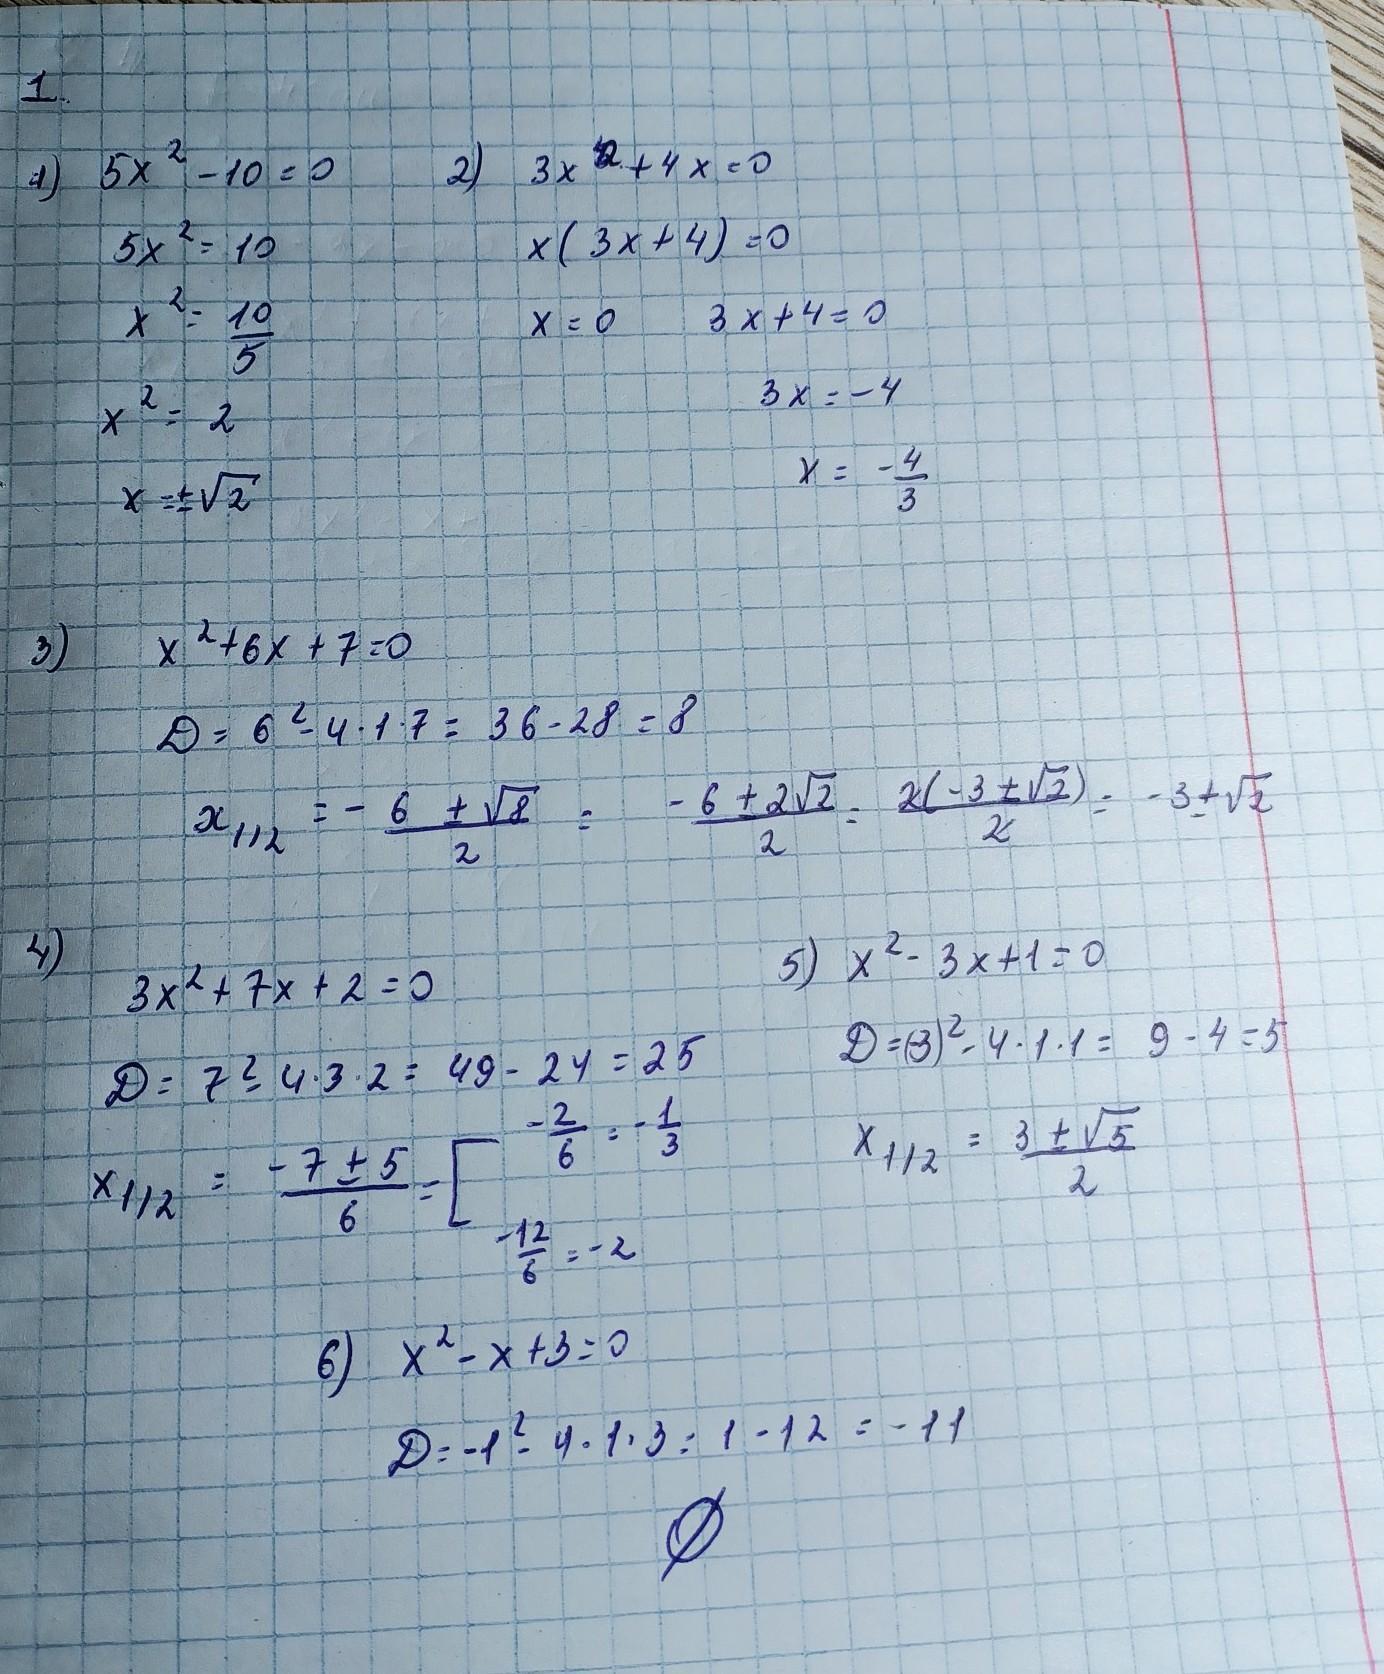 1.
1) 5x² - 10 = 0
5x² = 10
x² = 10/5
x² = 2
x = ±√2
2) 3x² + 4x = 0
x(3x + 4) = 0
x = 0    3x + 4 = 0
3x = -4
x = -4/3
3) x² + 6x + 7 = 0
D = 6² - 4·1·7 = 36 - 28 = 8
x₁,₂ = - 6 ± √8 / 2 = -6 ± 2√2 / 2 = 2(-3 ± √2) / 2 = -3 ± √2
4) 3x² + 7x + 2 = 0
D = 7² - 4·3·2 = 49 - 24 = 25
x₁,₂ = -7 ± 5 / 6 = [ -2/6 = -1/3
-12/6 = -2
5) x² - 3x + 1 = 0
D = (-3)² - 4·1·1 = 9 - 4 = 5
x₁,₂ = 3 ± √5 / 2
6) x² - x + 3 = 0
D = -1² - 4·1·3 = 1 - 12 = -11
∅